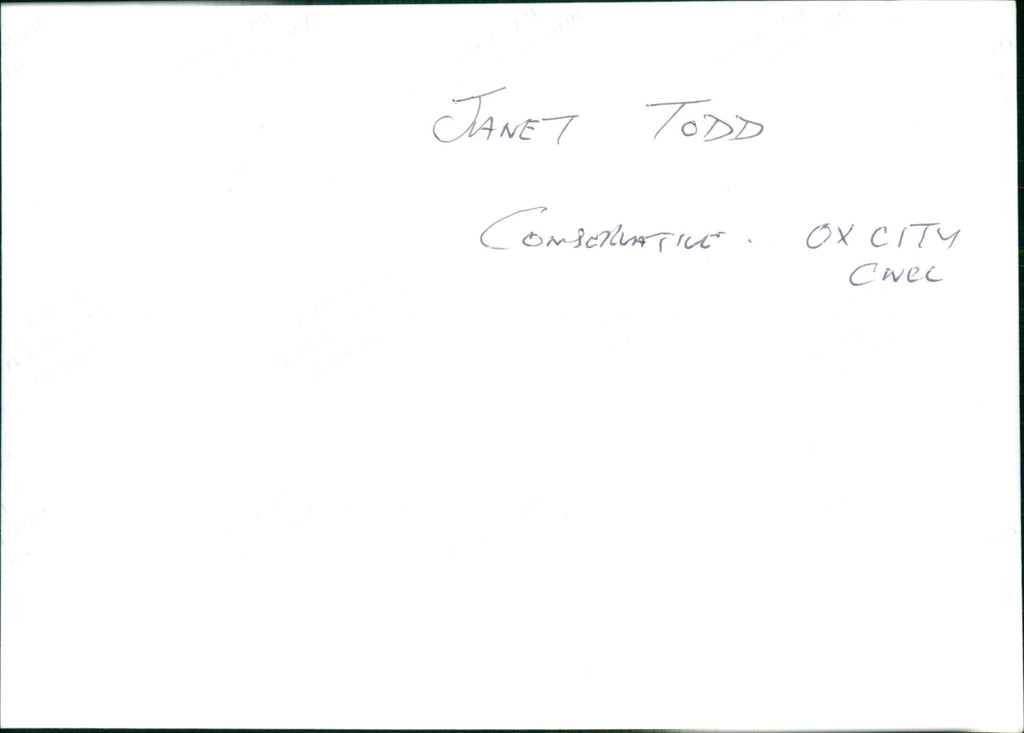 JANET TODD
CONSERVATIVE. OX CITY
CNCL